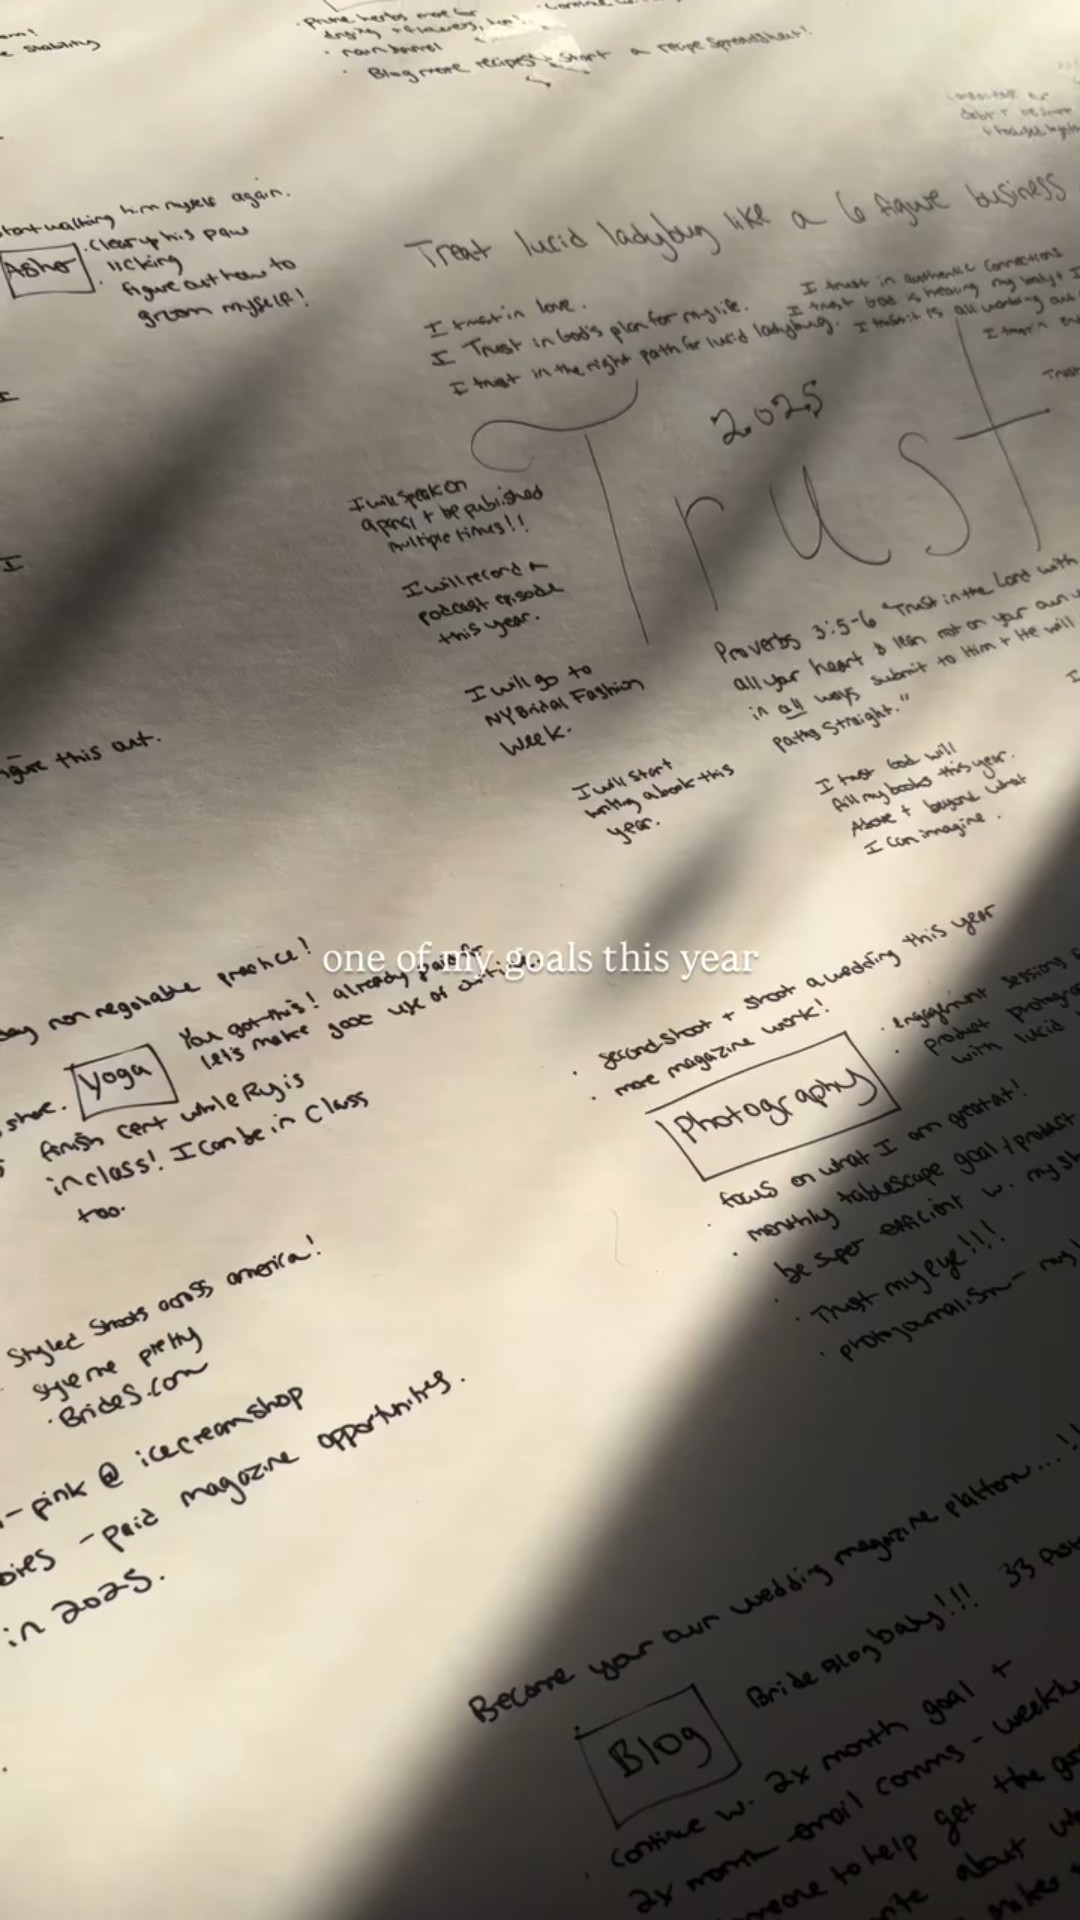 Prune herbs more for
drying + flowers, too!
rain barrel
Blog more recipes + start a recipe spreadsheet!
start walking him myself again.
Asher
clear up his paw
licking
figure out how to
groom myself!
Treat lucid ladybug like a 6 figure business
I trust in love.
I Trust in God's plan for my life.
I trust in the right path for lucid ladybug.
I trust in authentic connections
I trust God is healing my body + I
I trust it is all working out
Trust
2025
I will speak on
a panel + be published
multiple times!!
I will record a
podcast episode
this year.
I will go to
NY Bridal Fashion
Week.
I will start
writing a book this
year.
Proverbs 3:5-6 "Trust in the Lord with
all your heart & lean not on your own
in all ways submit to Him + He will
paths straight."
I trust God will
fill my books this year.
Above + beyond what
I can imagine.
figure this out.
one of my goals this year
day non negotiable practice!
Yoga
You got this! already paid for
let's make good use of
share.
finish cert while Ry is
in class! I can be in class
too.
second shoot + shoot a wedding this year
more magazine work!
Photography
engagement sessions
product photography
with lucid
focus on what I am great at!
monthly tablescape goal / product
be super efficient w. my
Trust my eye!!!
photojournalism - my
Styled Shoots across america!
style me pretty
Brides.com
- pink @ icecream shop
- paid magazine opportunities.
in 2025.
Become your own wedding magazine platform...!!
Blog
Bride Blog baby!!! 33
continue w. 2x month goal +
2x month email comms - weekly
someone to help get the
write about